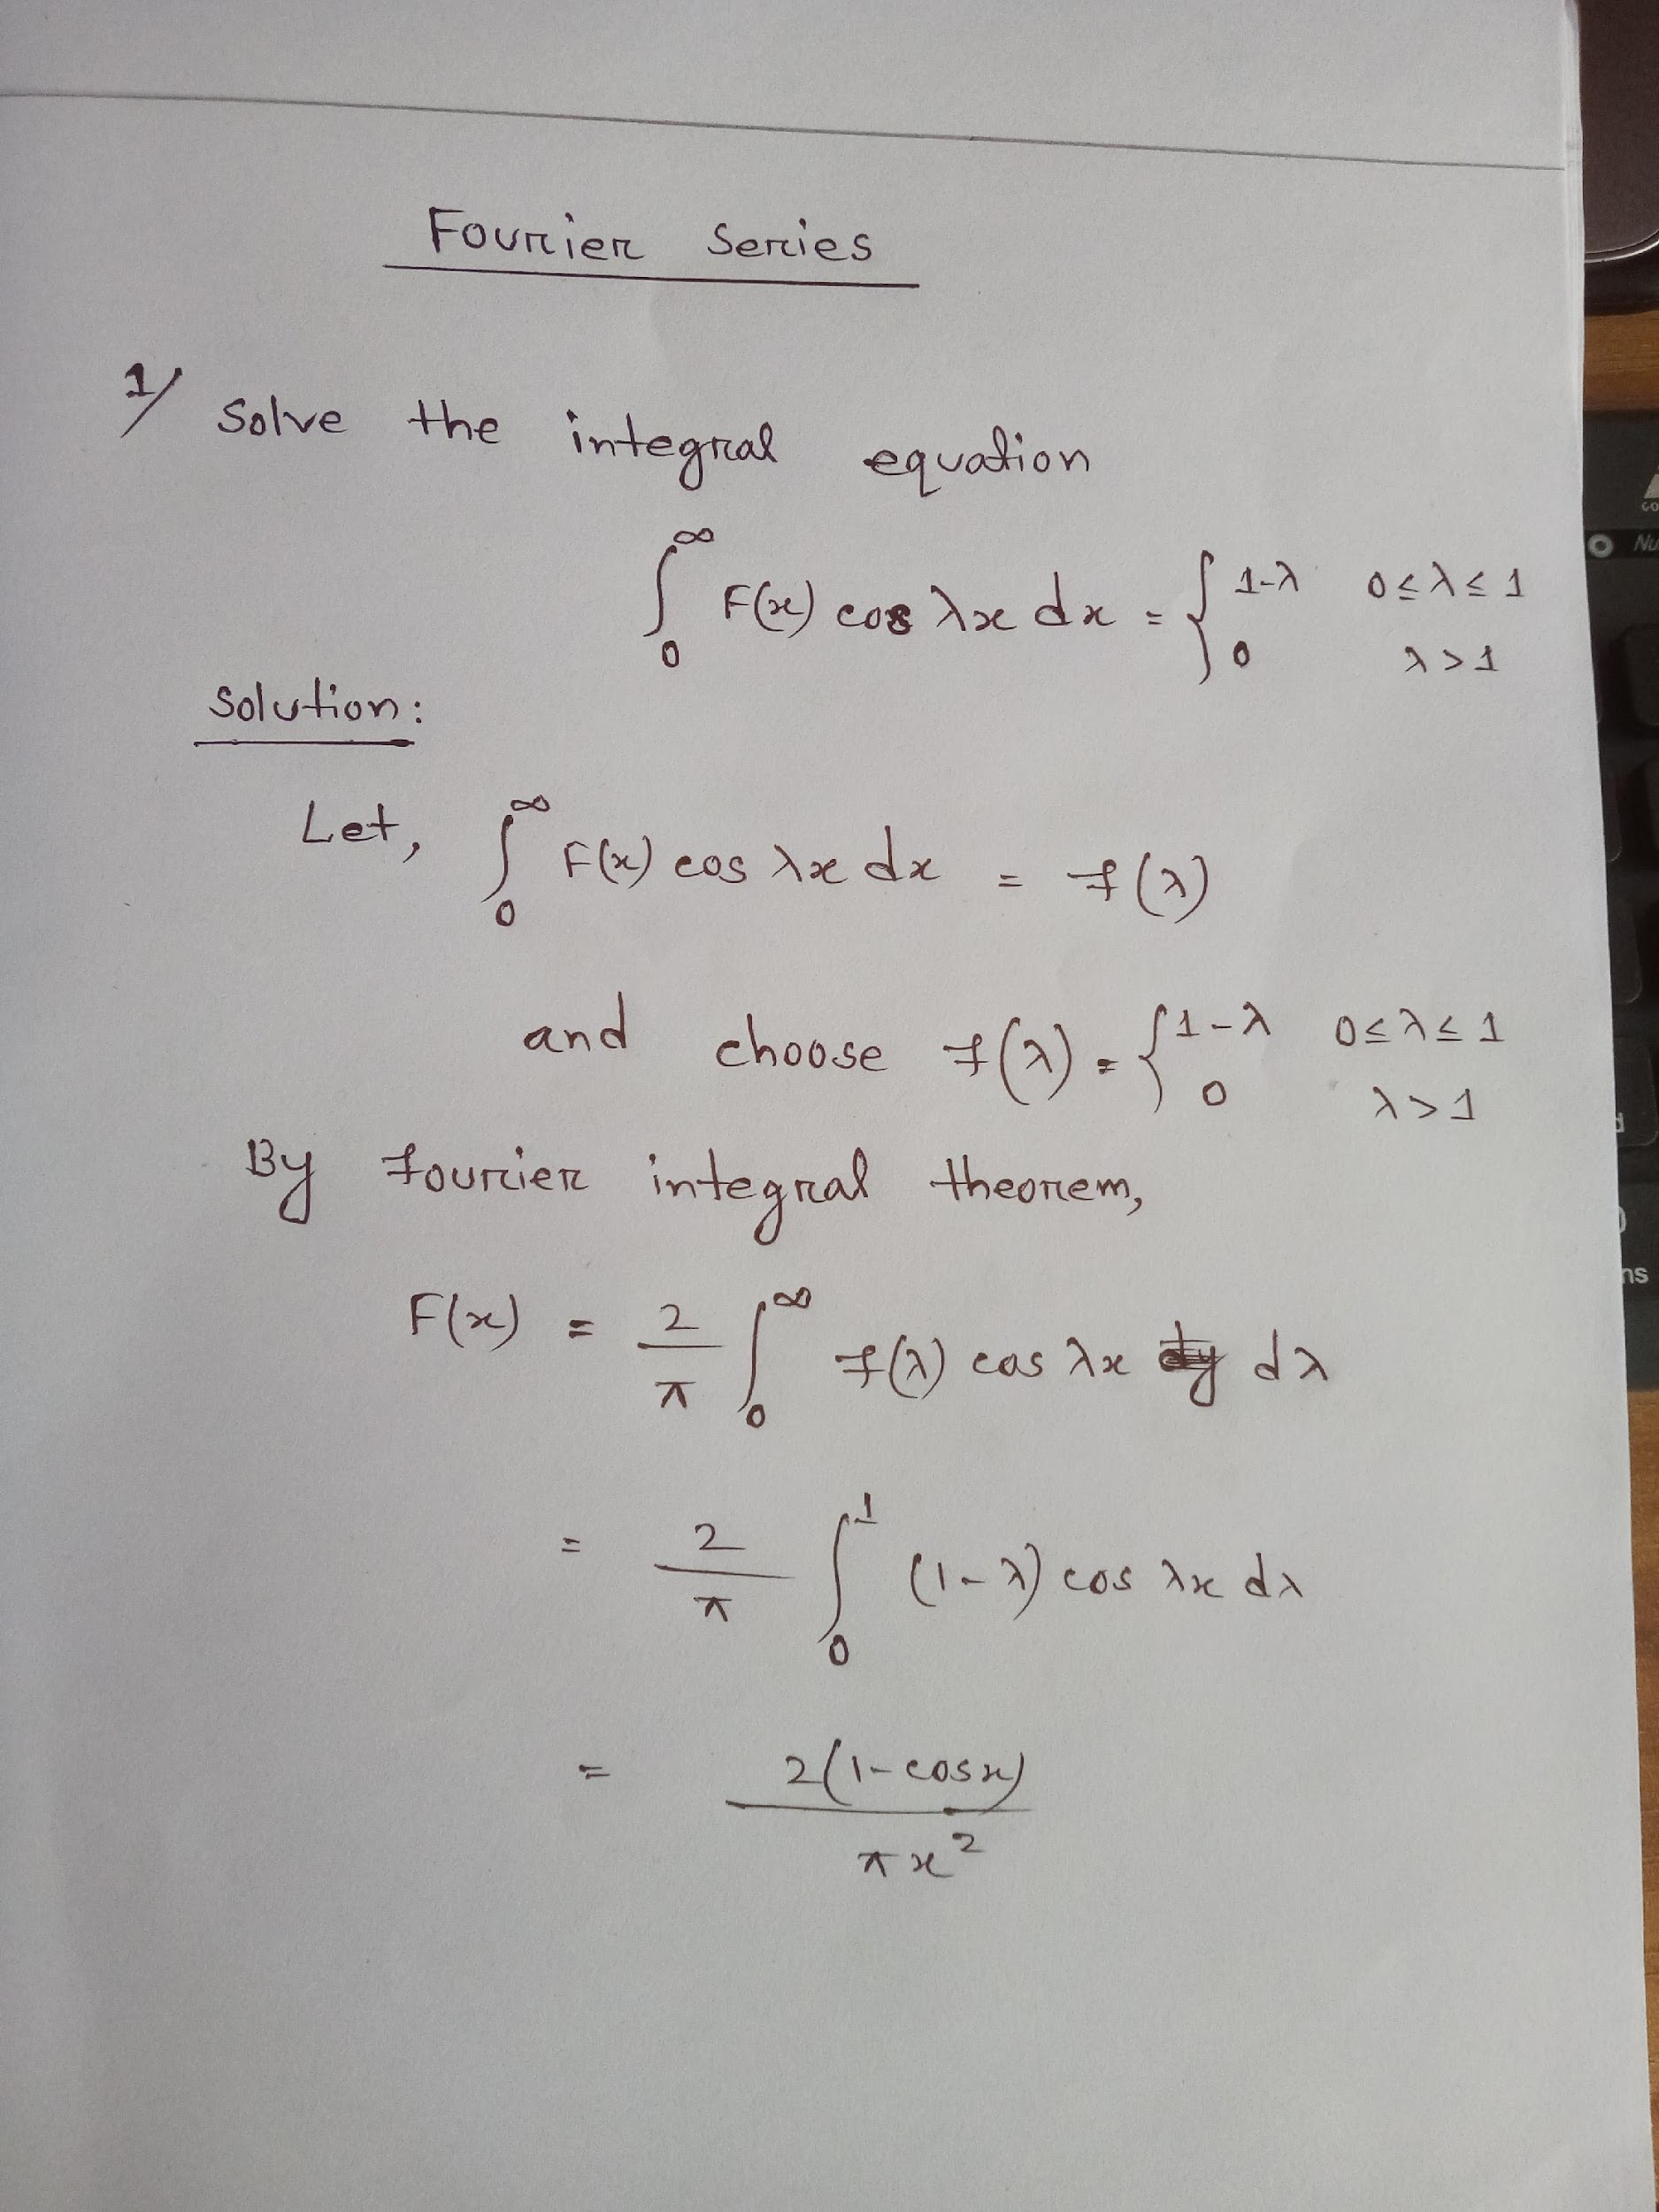 Fourier Series
1/ Solve the integral equation
∫₀^∞ F(x) cos λx dx = { 1-λ 0≤λ≤1
0 λ>1
Solution:
Let, ∫₀^∞ F(x) cos λx dx = f(λ)
and choose f(λ) = { 1-λ 0≤λ≤1
0 λ>1
By fourier integral theorem,
F(x) = 2/π ∫₀^∞ f(λ) cos λx dλ
= 2/π ∫₀^1 (1-λ) cos λx dλ
= 2(1-cosx)/πx²